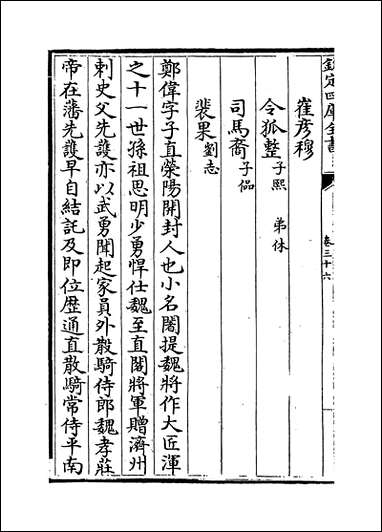 欽定四庫全書
卷三十六
崔彥穆
令狐整子熙 弟休
司馬裔子侃
裴果劉志
鄭偉字子直滎陽開封人也小名闍提魏將作大匠渾
之十一世孫祖思明少勇悍仕魏至直閣將軍贈濟州
刺史父先護亦以武勇聞起家員外散騎侍郎魏孝莊
帝在藩先護早自結託及即位歴通直散騎常侍平南